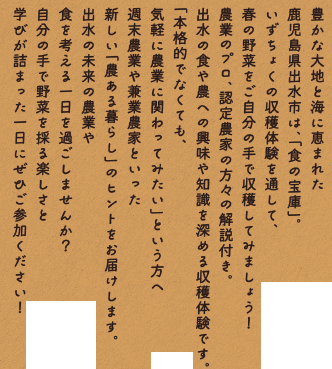 豊かな大地と海に恵まれた
鹿児島県出水市は、「食の宝庫」。
いずちょくの収穫体験を通して、
春の野菜をご自分の手で収穫してみましょう！
農業のプロ、認定農家の方々の解説付き。
出水の食や農への興味や知識を深める収穫体験です。
「本格的でなくても、
気軽に農業に関わってみたい」という方へ
週末農業や兼業農家といった
新しい「農ある暮らし」のヒントをお届けします。
出水の未来の農業や
食を考える一日を過ごしませんか？
自分の手で野菜を採る楽しさと
学びが詰まった一日にぜひご参加ください！